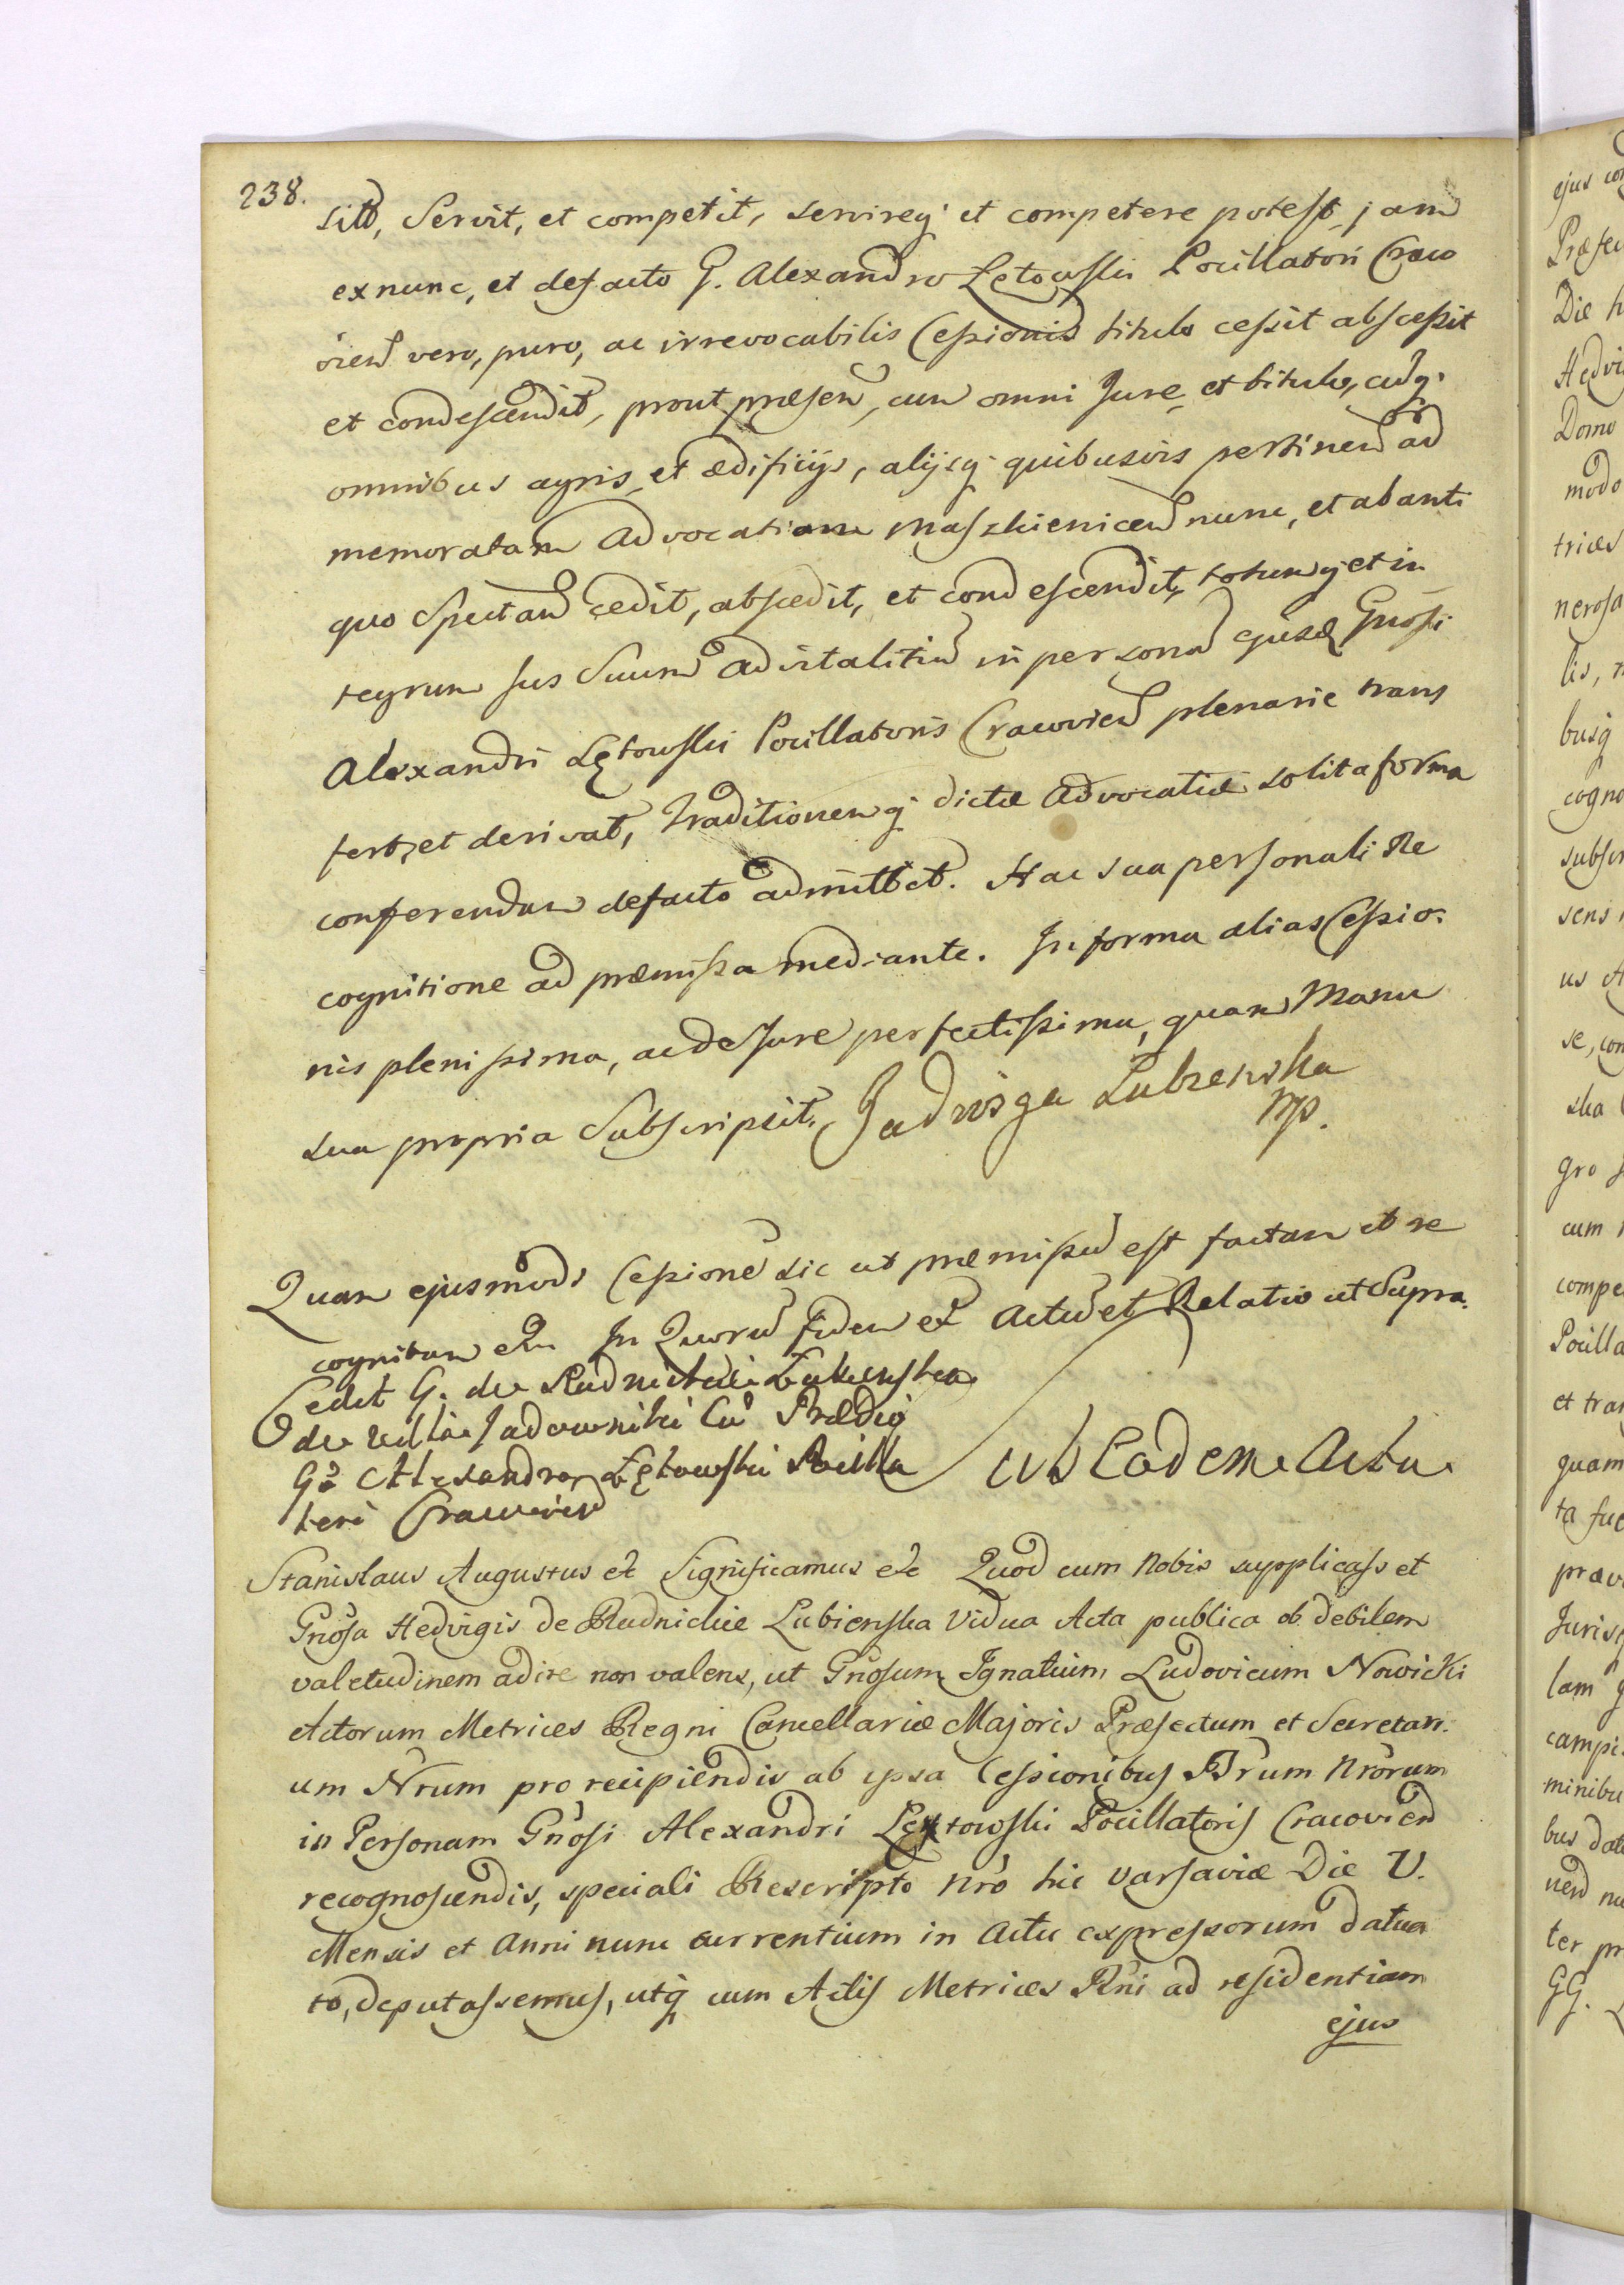 238.
sitt, Servit, et competit, servireq; et competere potest, jam
ex nunc, et defacto G. Alexandro Łętowski Pocillatori Craco
vien vero, puro, ac irrevocabilis Cessionis titulo cessit abscessit
et condescendit, prout præsen, cum omni Jure, et titulo, cumq.
omnibus agris, et ædificijs, alijsq; quibusvis pertinen ad
memoratam Advocatiam Maszkienicen nunc, et ab anti
quo Spectan cedit, abscedit, et condescendit, totumq; et in
tegrum Jus Suum advitalitium in persona ejusd Gnosi
Alexandri Łętowski Pocillatoris Cracovien plenarie trans
fert, et derivat, Traditionemq; dictæ Advocatiæ solita forma
conferendam defacto admittet. Hac sua personali Re
cognitione ad præmissa mediante. In forma alias Cessio-
nis plenissima, ac de Jure perfectissima, quam Manu
sua propria Subscripsit. Jadwiga Lubienska
mp.
Quam ejusmodi Cessione sic ut præmissu est factam et re
cognitam etc. In Quoru fidem etc Actu et Relatio ut Supra.
Cedit G. de Rudnickie Łubienska
de Villa Jadowniki Cu Prædio
Go Alexandro Łętowski Pocilla
tori Cracovien
sub Eodem Actu
Stanislaus Augustus etc Significamus etc Quod cum Nobis supplicass et
Gnosa Hedvigis de Rudnickie Lubienska Vidua Acta publica ob debilem
valetudinem adire non valens, ut Gnosum Ignatium Ludovicum Nowicki
Actorum Metrices Regni Cancellariæ Majoris Præfectum et Secretari-
um Nrum pro recipiendis ab ipsa Cessionibus Jurum Nrorum
in Personam Gnosi Alexandri Łętowski Pocillatoris Cracovien
recognoscendis, speciali Rescripto Nro hic Varsaviæ Die V.
Mensis et Anni nunc currentium in Actu expressorum datua
to, deputassemus, utq; cum Actis Metrices Rni ad residentiam
ejus